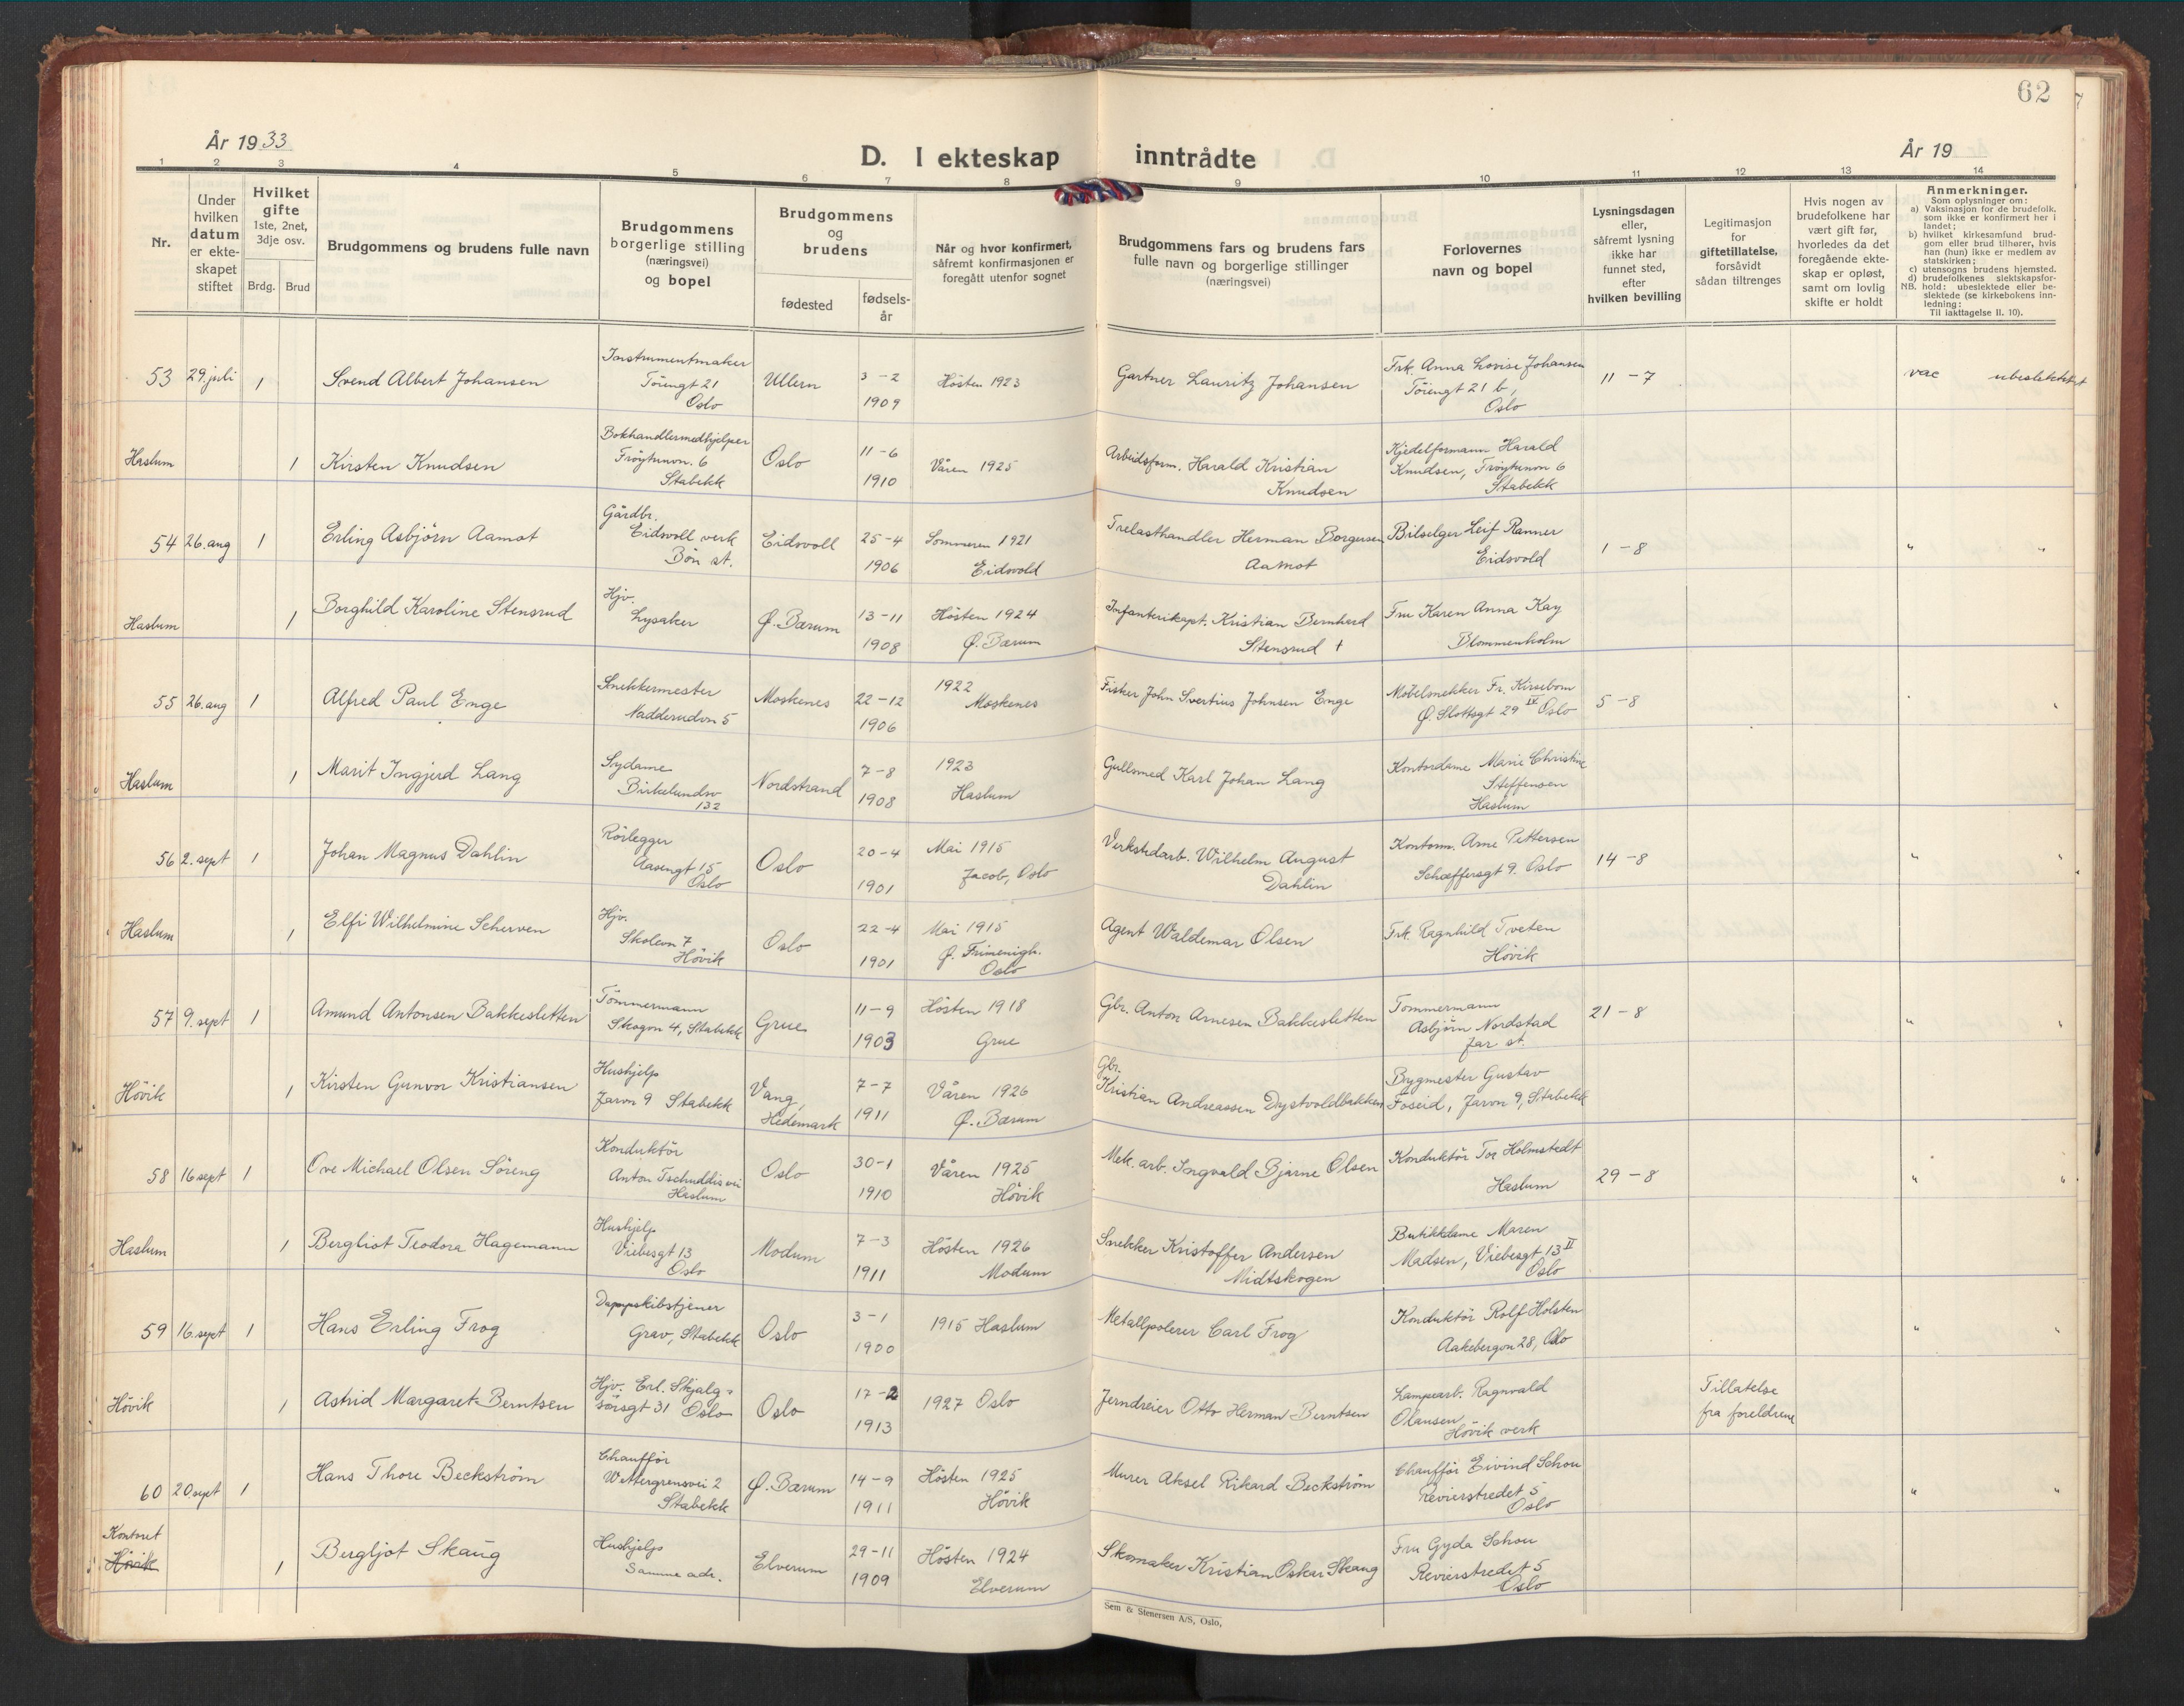 62
År 1933
D. I ekteskap inntrådte
År 19
1 2 3 4 5 6 7 8 9 10 11 12 13 14
Nr.
Under hvilken datum er ekte-skapet stiftet
Hvilket gifte 1ste, 2net, 3dje osv.
Brdg. Brud
Brudgommens og brudens fulle navn
Brudgommens borgerlige stilling (næringsvei) og bopel
Brudgommens og brudens
fødested
fødsels-år
Når og hvor konfirmert, såfremt konfirmasjonen er foregått utenfor sognet
Brudgommens fars og brudens fars fulle navn og borgerlige stillinger (næringsvei)
Forlovernes navn og bopel
Lysningsdagen eller, såfremt lysning ikke har funnet sted, efter hvilken bevilling
Legitimasjon for giftetillatelse, forsåvidt sådan tiltrenges
Hvis nogen av brudefolkene har vært gift før, hvorledes da det foregående ekte-skap er opløst, samt om lovlig skifte er holdt
Anmerkninger.
Som oplysninger om:
a) Vaksinasjon for de brudefolk. som ikke er konfirmert her i landet;
b) hvilket kirkesamfund brud-gom eller brud tilhører, hvis han (hun) ikke er medlem av statskirken;
c) utensogns brudens hjemsted.
d) brudefolkenes slektskapsfor-hold: ubeslektede eller be-slektede (se kirkebokens inn-ledning:
NB.
Til iakttagelse II. 10).
53 29. juli 1 Svend Albert Johansen
Instrumentmaker Töiengt 21 Oslo
Ullern 3-2 1909 Hösten 1923
Gartner Lauritz Johansen
Frk. Anna Lovise Johansen Töiengt 21 b, Oslo
11-7 vac ubeslektet
Haslum 1 Kirsten Knudsen
Bokhandlermedhjelper Fröytunvn. 6 Stabekk
Oslo 11-6 1910 Våren 1925
Arbeidsform. Harald Kristian Knudsen
Kjedelformann Harald Knudsen, Fröytunvn 6 Stabekk
54 26. aug 1 Erling Asbjörn Aamot
Gårdbr. Eidsvoll verk Bön st.
Eidsvoll 25-4 1906 Sommeren 1921 Eidsvold
Trelasthandler Herman Borgersen Aamot
Bilselger Leif Ranner Eidsvold
1-8 " "
Haslum 1 Borghild Karoline Stensrud
Hjv. Lysaker
Ø. Bærum 13-11 1908 Hösten 1924 Ø. Bærum
Infanterikapt. Kristian Bernhard Stensrud †
Fru Karen Anna Kay Blommenholm
55 26. aug 1 Alfred Paul Enge
Snekkermester Nadderudvn 5
Moskenes 22-12 1906 1922 Moskenes
Fisker John Svertius Johnsen Enge
Möbelsnekker Fr. Kirsebom Ø. Slottsgt 29 IV Oslo
5-8 "
Haslum 1 Marit Ingjerd Lang
Sydame Birkelundsv 132
Nordstrand 7-8 1908 1923 Haslum
Gullsmed Karl Johan Lang
Kontordame Marie Christine Steffensen Haslum
56 2. sept 1 Johan Magnus Dahlin
Rörlegger Aasengt 15 Oslo
Oslo 20-4 1901 Mai 1915 Jacob, Oslo
Verkstedarb. Wilhelm August Dahlin
Kontorm. Arne Pettersen Schæffersgt 9. Oslo
14-8 " "
Haslum 1 Elfi Wilhelmine Scherven
Hjv. Skolevn 7 Hövik
Oslo 22-4 1901 Mai 1915 Ø. Frimenigh. Oslo
Agent Waldemar Olsen
Frk. Ragnhild Tveten Hövik
57 9. sept 1 Amund Antonsen Bakkesletten
Tömmermann Skogvn 4, Stabekk
Grue 11-9 1903 Hösten 1918 Grue
Gbr. Anton Arnesen Bakkesletten
Tommermann Asbjörn Nordstad Jar st.
21-8 " "
Hövik 1 Kirsten Gunvor Kristiansen
Hushjelp Jarvn 9 Stabekk
Vang, Hedemark 7-7 1911 Våren 1926 Ø. Bærum
Gbr. Kristian Andreassen Dystvoldbakken
Bygmester Gustav Foseid, Jarvn 9, Stabekk
58 16 sept 1 Ove Michael Olsen Söreng
Konduktör Anton Tschuddis vei Haslum
Oslo 30-1 1910 Våren 1925 Hövik
Mek. arb. Ingvald Bjarne Olsen
Konduktör Tor Holmstedt Haslum
29-8 " "
Haslum 1 Bergliot Teodora Hagemann
Hushjelp Vibesgt 13 Oslo
Modum 7-3 1911 Hösten 1926 Modum
Snekker Kristoffer Andersen Midtskogen
Butikkdame Maren Madsen, Vibesgt 13 II Oslo
59 16. sept 1 Hans Erling Frog
Dampskibstjener Grav, Stabekk
Oslo 3-1 1900 1915 Haslum
Metallpolerer Carl Frog
Konduktör Rolf Holsten Aakebergvn 28, Oslo
" "
Hövik 1 Astrid Margaret Berntsen
Hjv. Erl. Skjalgsönsgt 31 Oslo
Oslo 17-2 1913 1927 Oslo
Jerndreier Otto Herman Berntsen
Lampearb. Ragnvald Olausen Hövik verk
Tillatelse fra foreldrene
60 20 sept 1 Hans Thore Beckström
Chaufför Wettergrensvei 2 Stabekk
Ø. Bærum 14-9 1911 Hösten 1925 Hövik
Murer Aksel Rikard Beckström
Chaufför Eivind Schou Revierstredet 5 Oslo
" "
Kontoret Hövik 1 Bergljot Skaug
Hushjelp Samme adr.
Elverum 29-11 1909 Hösten 1924 Elverum
Skomaker Kristian Oskar Skaug
Fru Gyda Schou Revierstredet 5 Oslo
Sem & Stenersen A/S, Oslo.